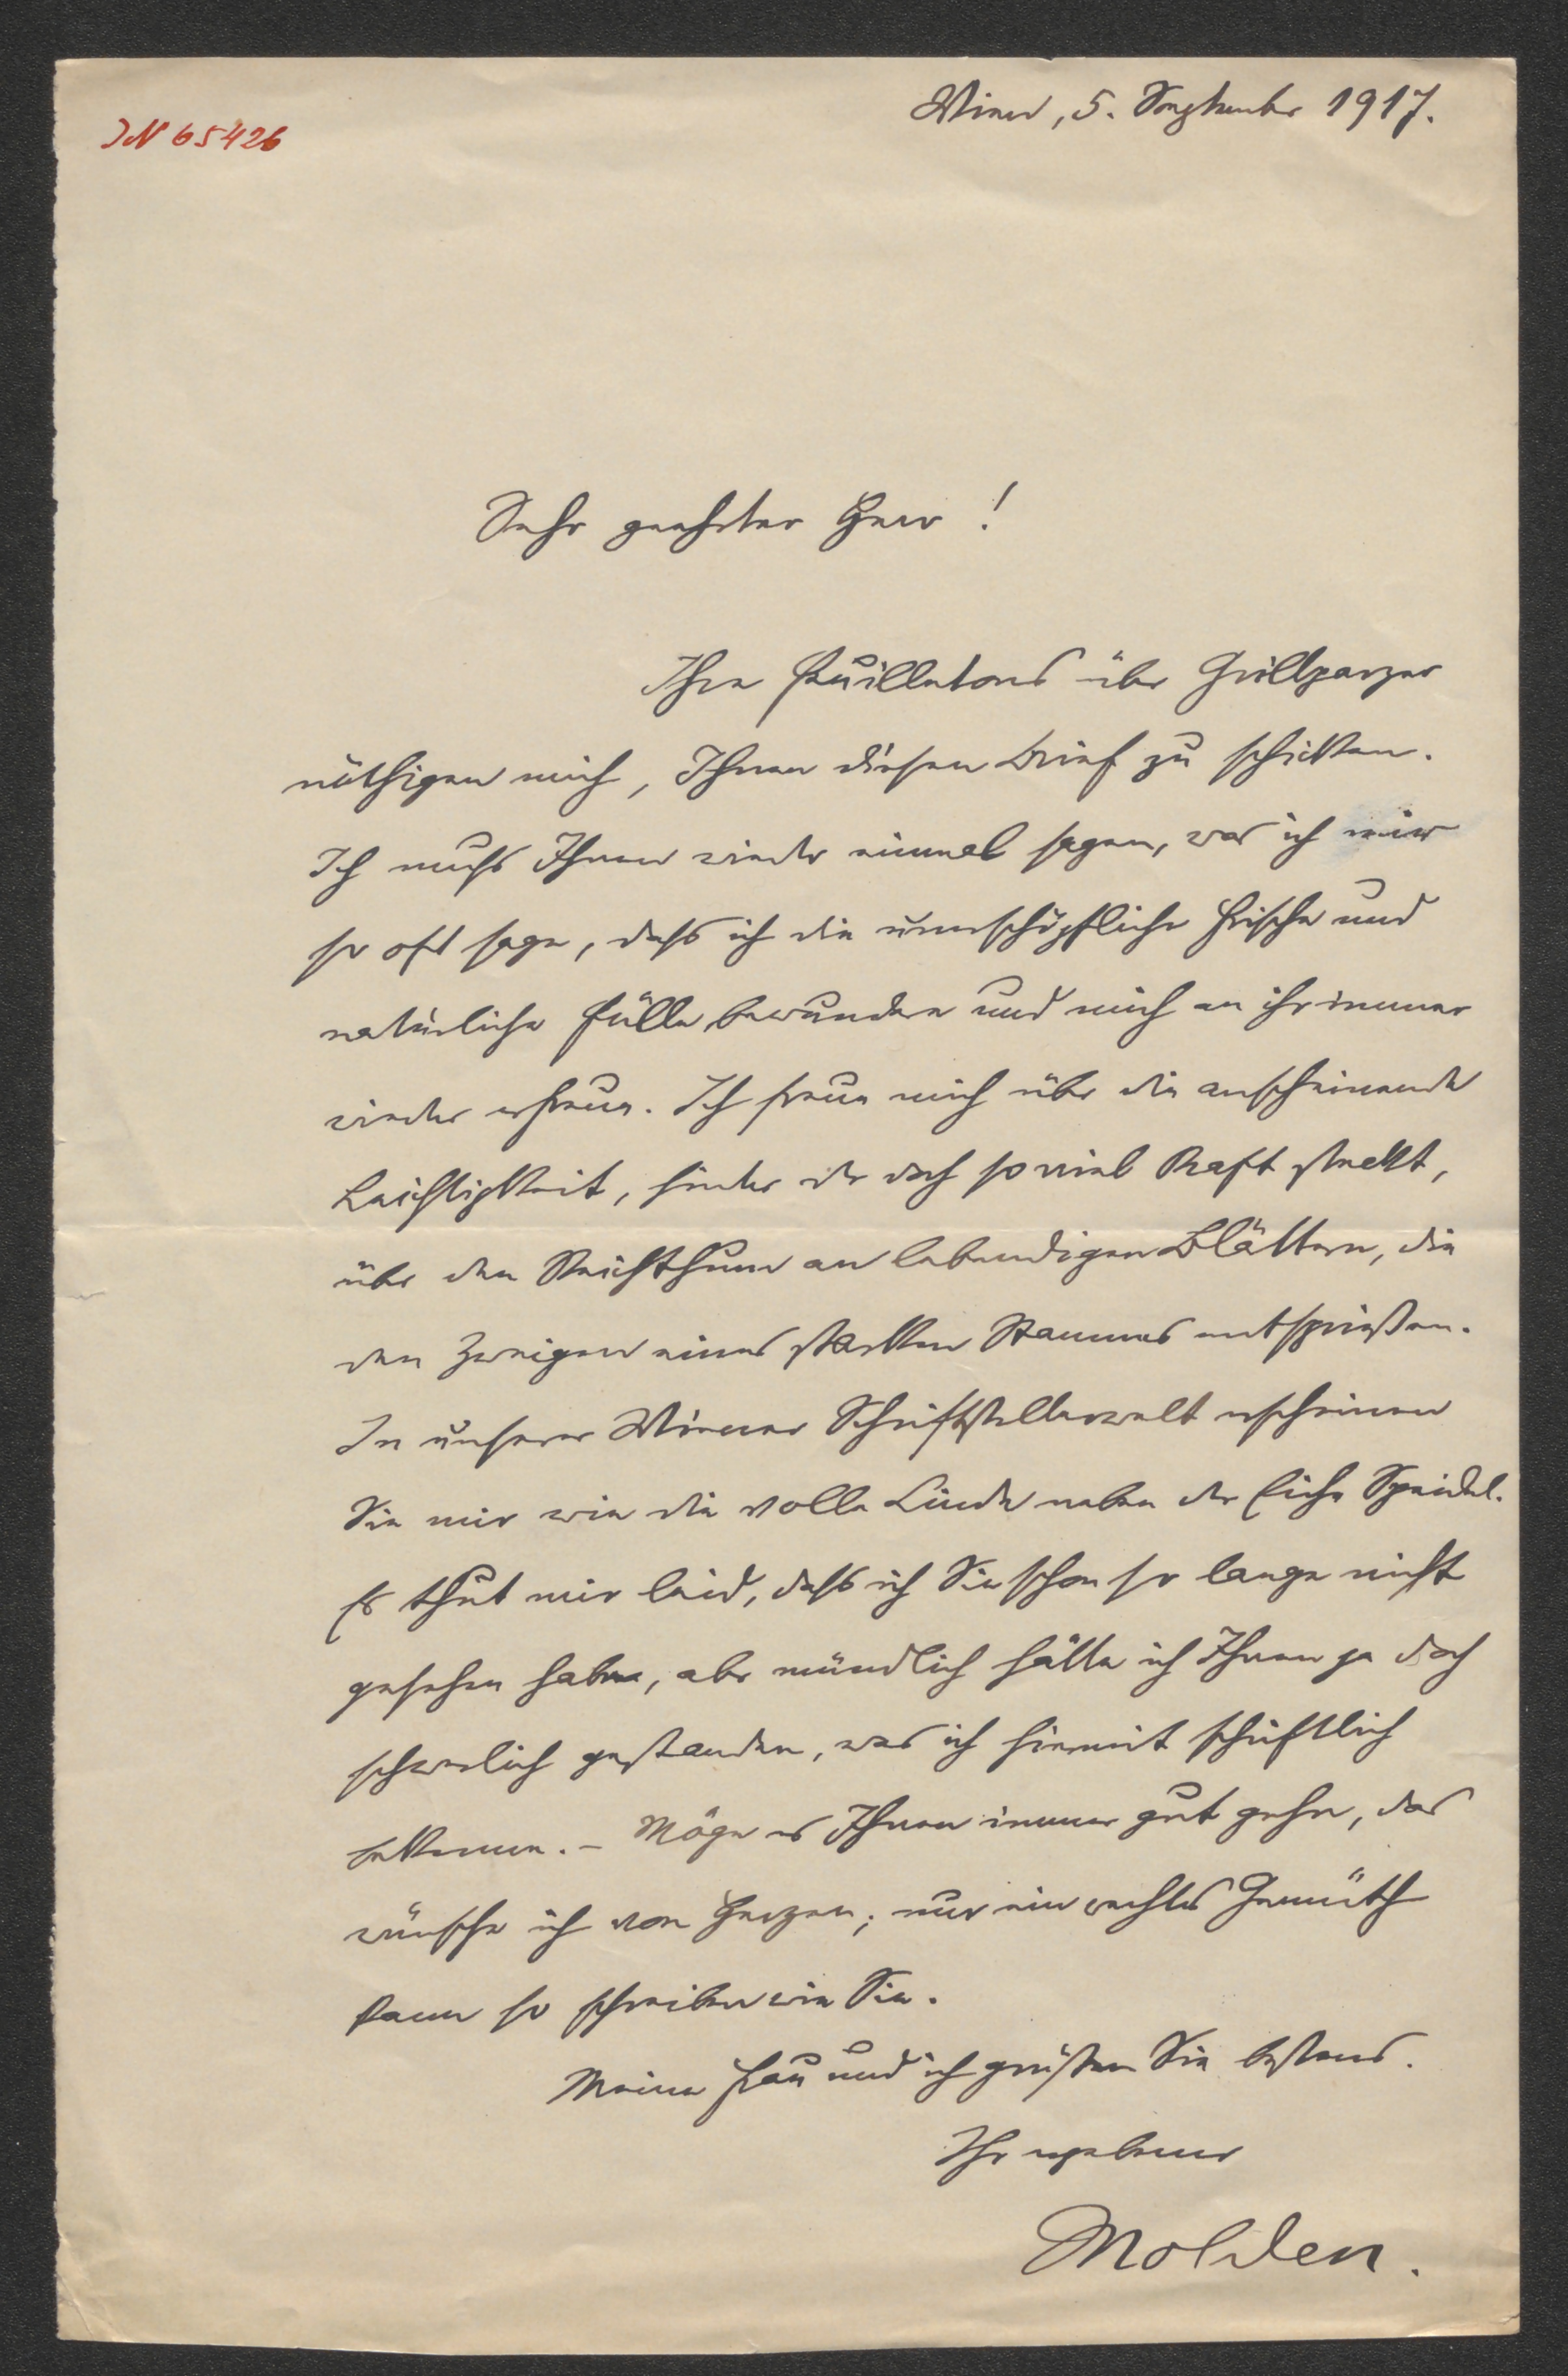 IN 65426
Wien, 5. September 1917.
Sehr geehrter Herr!
Ihre Feuilletons über Grillparzer
nöthigen mich, Ihnen diesen Brief zu schicken.
Ich muss Ihnen wieder einmal sagen, was ich mir
so oft sage, dass ich die unerschöpfliche Frische und
natürliche Fülle bewundere und mich an ihr immer
wieder erfreue. Ich freue mich über die anscheinende
Leichtigkeit, hinter der doch so viel Kraft steckt,
über den Reichthum an lebendigen Blättern, die
den Zweigen eines starken Stammes entsprießen.
In unserer Wiener Schriftstellerwelt erscheinen
Sie mir wie die volle Linde neben der Eiche Speidel.
Es thut mir leid, dass ich Sie schon so lange nicht
gesehen habe, aber mündlich hätte ich Ihnen ja doch
schwerlich gestanden, was ich hiermit schriftlich
bekenne. – Möge es Ihnen immer gut gehen, das
wünsche ich von Herzen; nur ein echtes Gemüth
kann so schreiben wie Sie.
Meine Frau und ich grüßen Sie bestens.
Ihr ergebener
Molden.